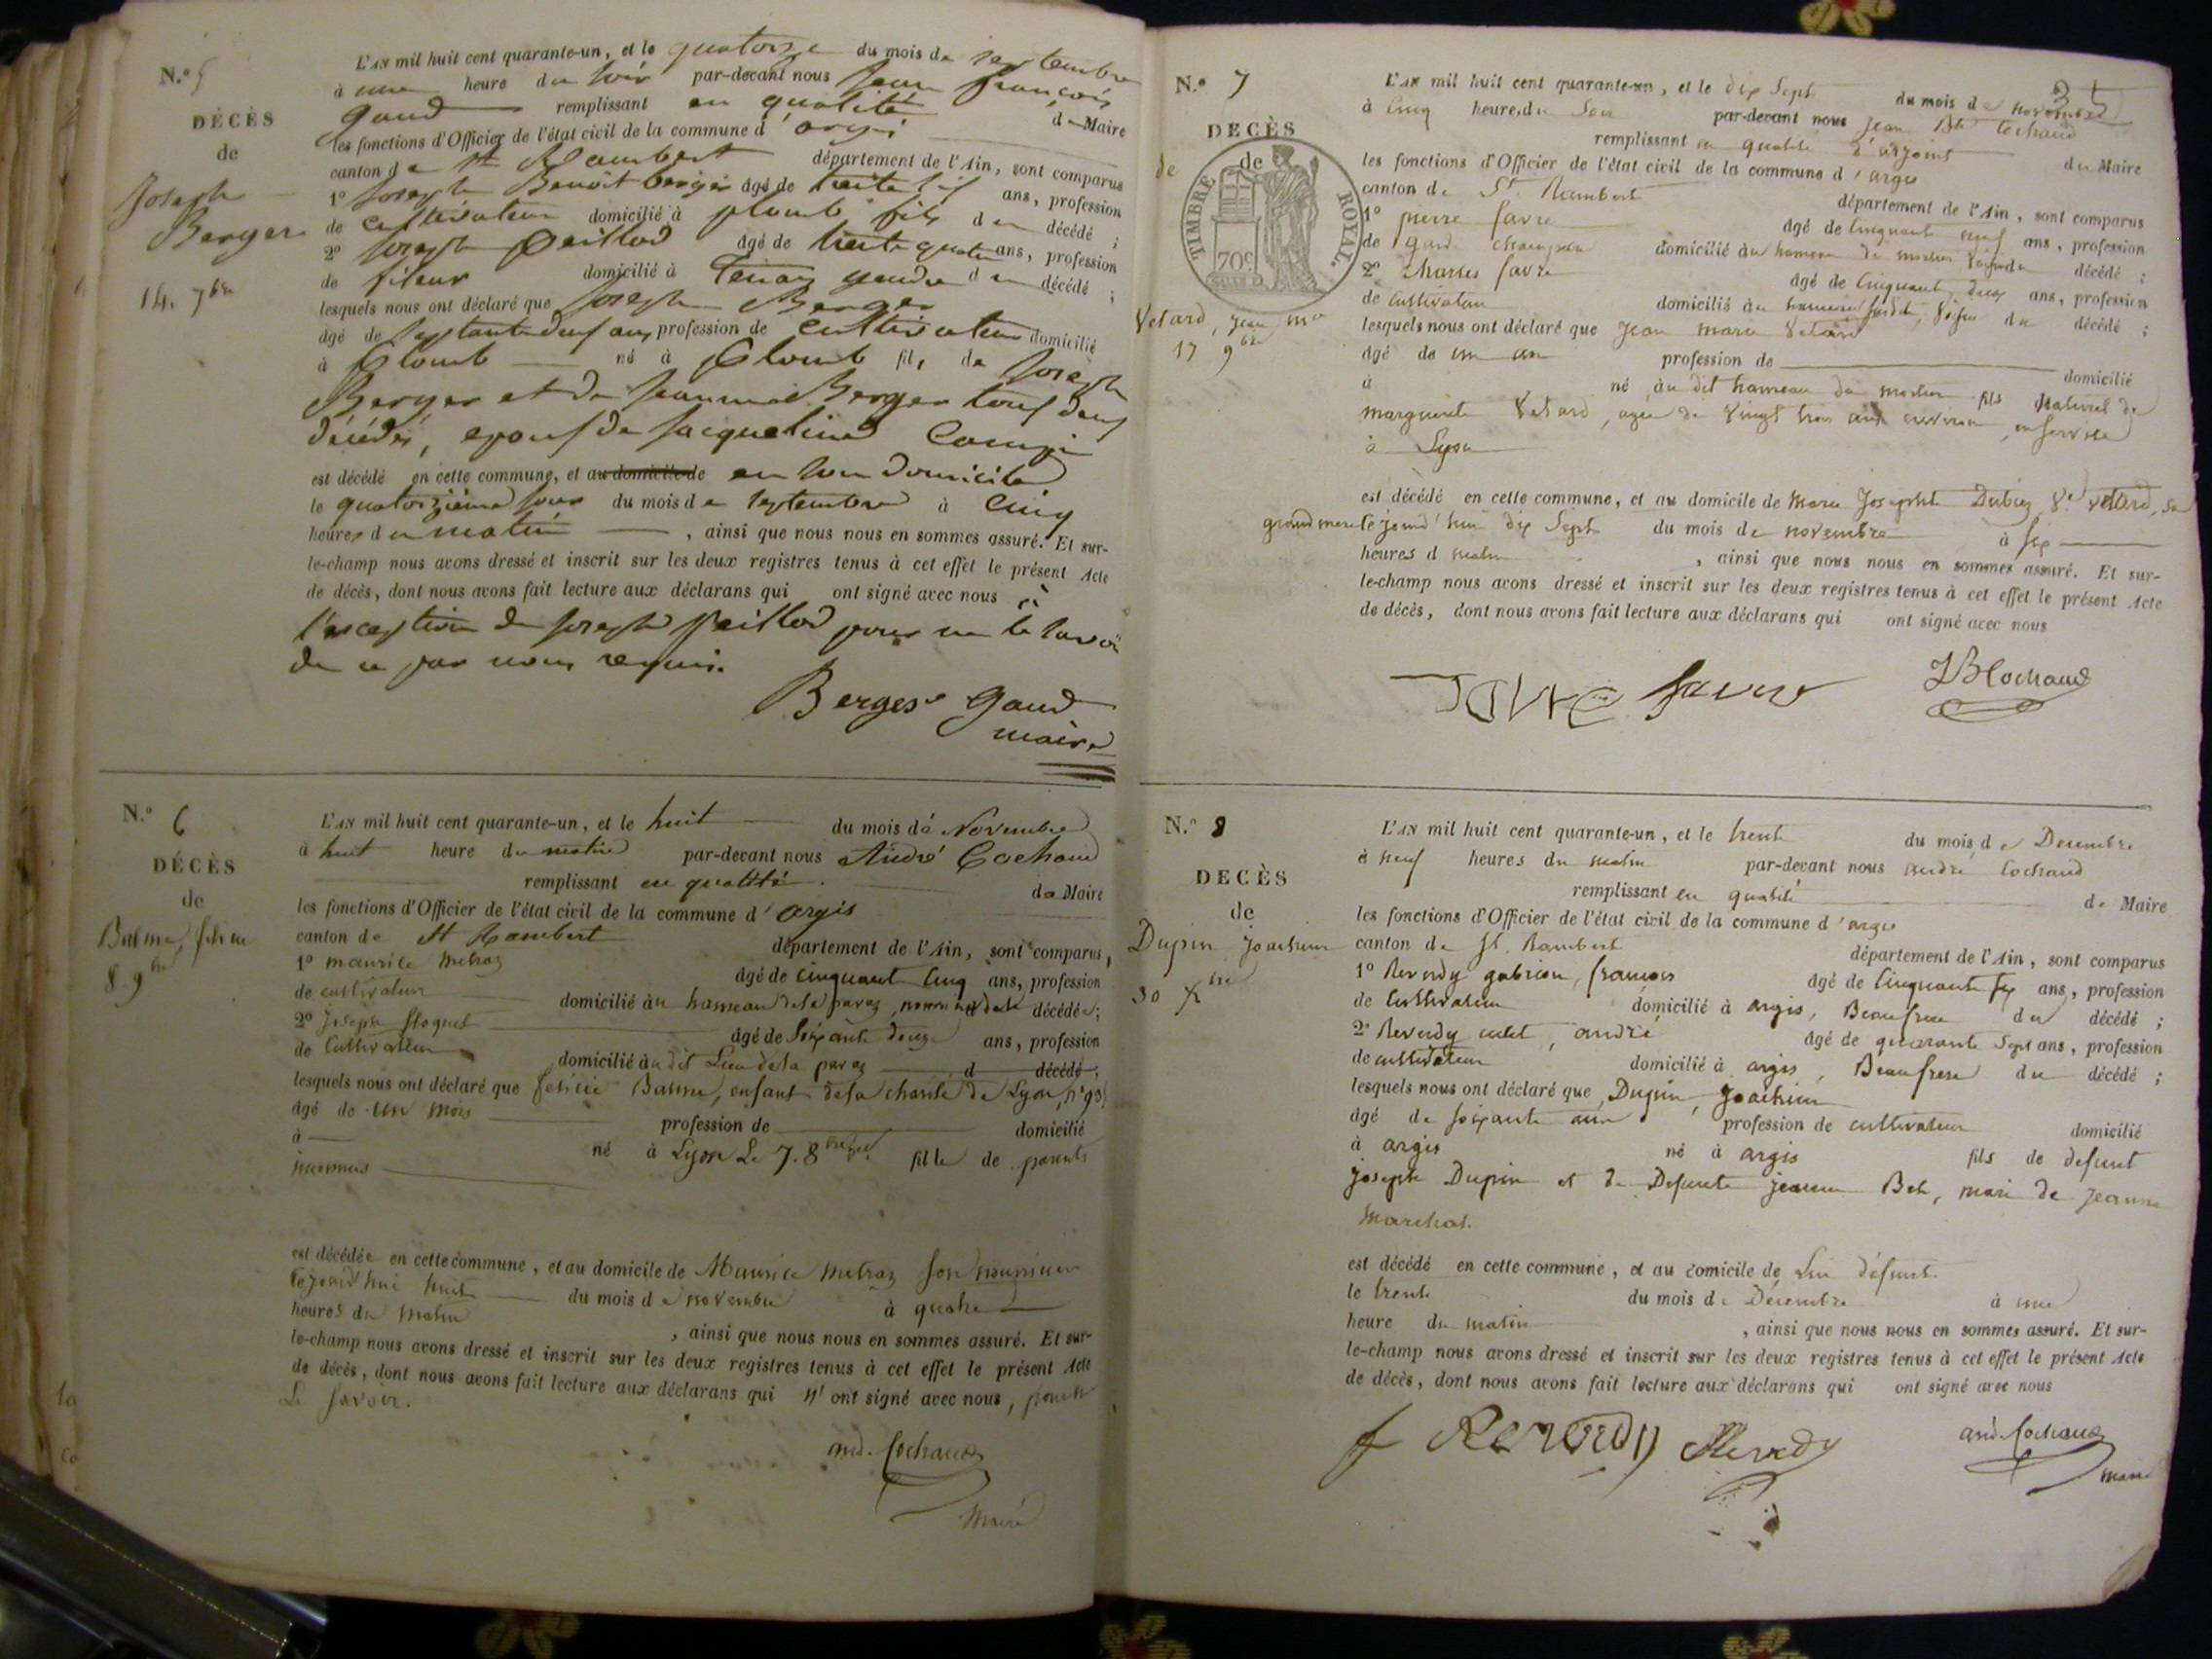 N.° 5
DÉCÈS
de
Joseph
Berger
14. 7bre
L'AN mil huit cent quarante-un, et le quatorze du mois de septembre
à une heure du soir par-devant nous Jean françois
Gaud remplissant en qualité de Maire
les fonctions d'Officier de l'état civil de la commune d'argis
canton de St Rambert département de l'Ain, sont comparus
1° Joseph Benoit berger âgé de trente ans, profession
de cultivateur domicilié à plomb fils du décédé ;
2° Joseph Peillod âgé de trente quatre ans, profession
de fileur domicilié à Tenay gendre du décédé ;
lesquels nous ont déclaré que Joseph Berger
âgé de septante deux ans, profession de cultivateur domicilié
à Plomb né à Plomb fils de Joseph
Berger et de Jeanne Berger tous deux
décédés, epoux de Jacqueline
est décédé en cette commune, et au domicile de en son domicile
le quatorzième jour du mois de septembre à Cinq
heures du matin , ainsi que nous nous en sommes assuré. Et sur-
le-champ nous avons dressé et inscrit sur les deux registres tenus à cet effet le présent Acte
de décès, dont nous avons fait lecture aux déclarans qui ont signé avec nous à
l'exception de Joseph Peillod pour ne le savoir
de ce par nous requis.
Berger Gaud
maire
N.° 6
DÉCÈS
de
Balme, felicie
8 9bre
L'AN mil huit cent quarante-un, et le huit du mois de Novembre
à huit heure du matin par-devant nous André Cochaud
remplissant en qualité de Maire
les fonctions d'Officier de l'état civil de la commune d'argis
canton de St Rambert département de l'Ain, sont comparus,
1° maurice metraz âgé de cinquante cinq ans, profession
de cultivateur domicilié au hameau de la paraz, nourricier de la décédée ;
2° Joseph floquet âgé de soixante douze ans, profession
de Cultivateur domicilié au dit Lieu de la paraz d décédé ;
lesquels nous ont déclaré que felicie Balme, enfant de la charité de Lyon, n° 93
âgé de un mois profession de domicilié
à né à Lyon Le 7. 8bre fille de parents
inconnus
est décédée en cette commune, et au domicile de Maurice metraz son nourricier
le jourd'hui huit du mois de novembre à quatre
heures du matin , ainsi que nous nous en sommes assuré. Et sur-
le-champ nous avons dressé et inscrit sur les deux registres tenus à cet effet le présent Acte
de décès, dont nous avons fait lecture aux déclarans qui n'ont signé avec nous,
Le savoir.
and. Cochaud
Maire
35
N.° 7
DÉCÈS
de
TIMBRE ROYAL.
70c
Vetard, jean mie
17 9bre
L'AN mil huit cent quarante-un, et le dix Sept du mois de novembre
à Cinq heures du Soir par-devant nous Jean Bte Cochaud
remplissant en qualité d'adjoint du Maire
les fonctions d'Officier de l'état civil de la commune d'argis
canton de St. Rambert département de l'Ain, sont comparus
1° pierre favre âgé de Cinquante neuf ans, profession
de garde champetre domicilié au hameau de voisin du décédé ;
2° Charles favre âgé de Cinquante deux ans, profession
de Cultivateur domicilié au hameau susdit, Voisin du décédé ;
lesquels nous ont déclaré que Jean marie Vetard
âgé de un an profession de domicilié
à né au dit hameau fils Naturel de
marguerite Vetard, agée de Vingt trois ans environ, en service
à Lyon
est décédé en cette commune, et au domicile de marie Josephte Dubiez Ve Vetard, sa
grand mere le jourd'hui dix Sept du mois de novembre à six
heures d matin , ainsi que nous nous en sommes assuré. Et sur-
le-champ nous avons dressé et inscrit sur les deux registres tenus à cet effet le présent Acte
de décès, dont nous avons fait lecture aux déclarans qui ont signé avec nous
favre favre JBCochaud
N.° 8
DÉCÈS
de
Dupin Joachim
30 Xbre
L'AN mil huit cent quarante-un, et le trente du mois de Decembre
à neuf heures du matin par-devant nous andré Cochaud
remplissant en qualité de Maire
les fonctions d'Officier de l'état civil de la commune d'argis
canton de St. Rambert département de l'Ain, sont comparus
1° Reverdy gabriou, françois âgé de Cinquante six ans, profession
de Cultivateur domicilié à argis, Beaufrere du décédé ;
2° Reverdy cadet, andré âgé de quarante Sept ans, profession
de cultivateur domicilié à argis, Beaufrere du décédé ;
lesquels nous ont déclaré que, Dupin, Joachim
âgé de soixante ans profession de cultivateur domicilié
à argis né à argis fils de defunt
joseph Dupin et de Defunte jeanne Bel, mari de jeanne
marchal.
est décédé en cette commune, et au domicile de Lui défunt.
le trente du mois de Décembre à une
heure du matin , ainsi que nous nous en sommes assuré. Et sur-
le-champ nous avons dressé et inscrit sur les deux registres tenus à cet effet le présent Acte
de décès, dont nous avons fait lecture aux déclarans qui ont signé avec nous
f Reverdy Reverdy and. Cochaud
maire